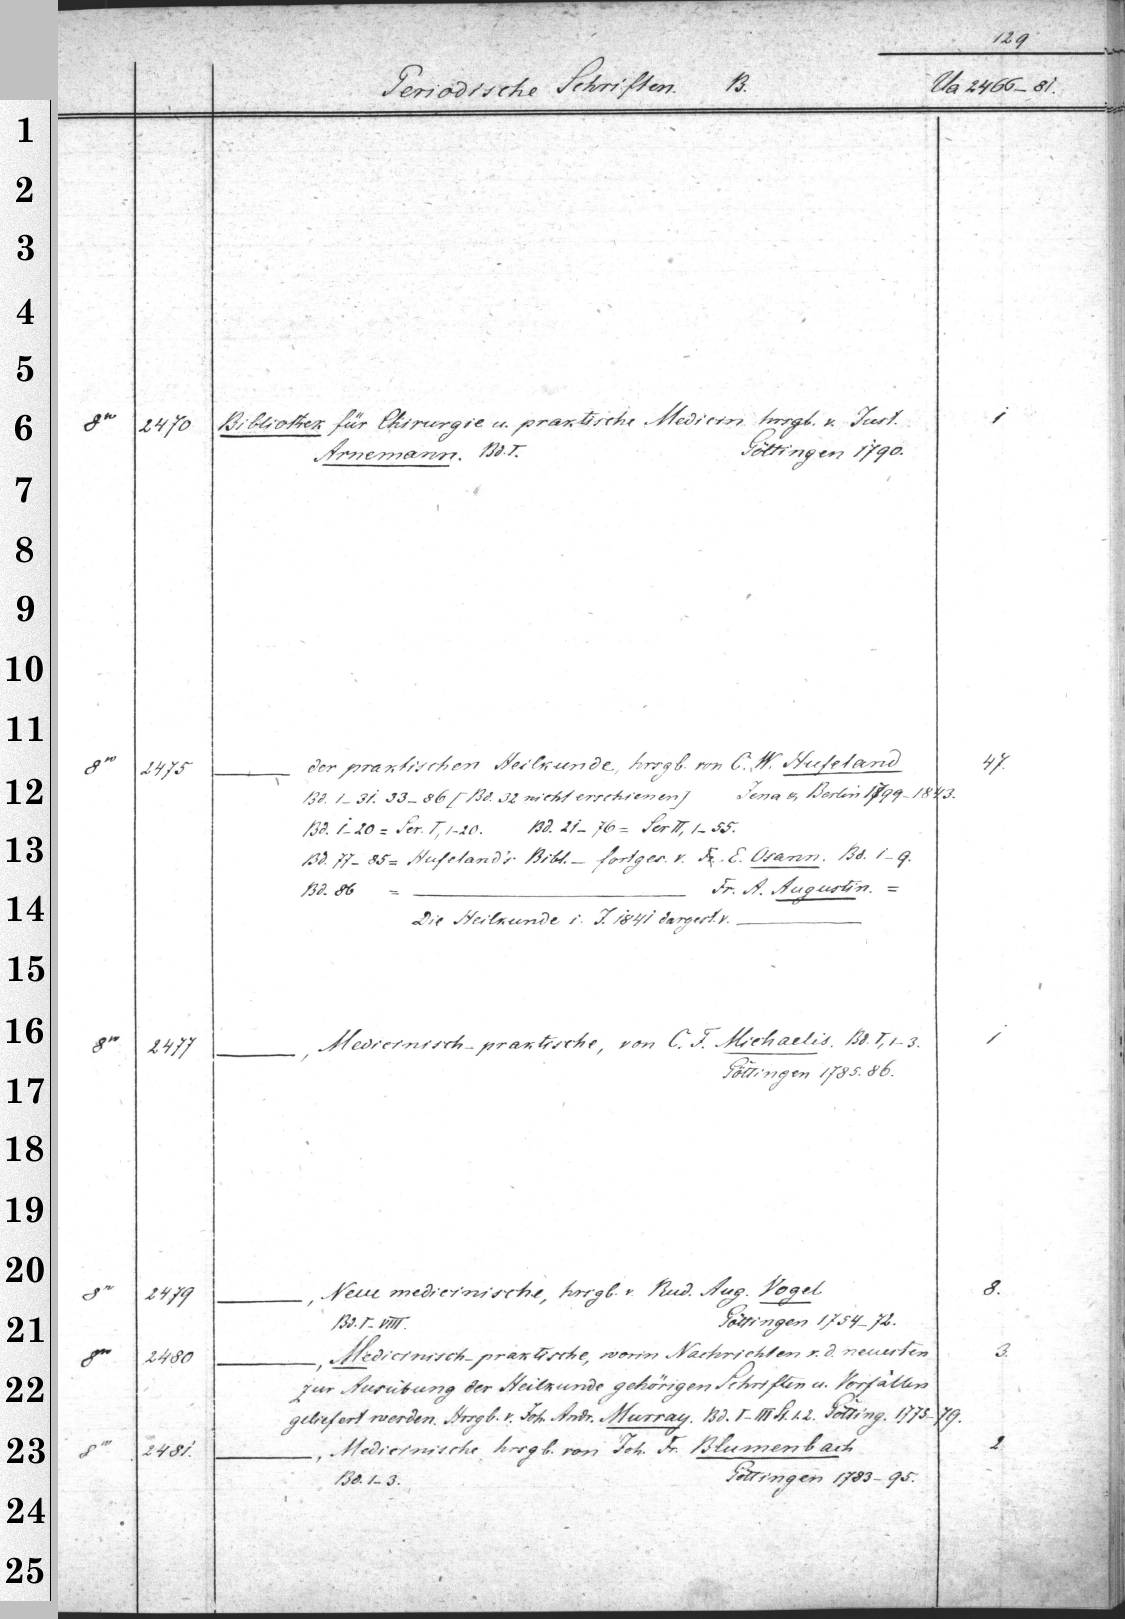 129
Periodische Schriften. B. Ua 2466-81.
1
2
3
4
5
6
7
8
9
10
11
12
13
14
15
16
17
18
19
20
21
22
23
24
25
8vo 2470 Bibliothek für Chirurgie u. praktische Medicin hrsgb. v. Just. 1
Arnemann. Bd. I. Göttingen 1790.
8vo 2475 ——— der praktischen Heilkunde, hrsgb. von C. W. Hufeland 47.
Bd. 1-31. 33-86 [Bd. 32 nicht erschienen] Jena u. Berlin 1799-1843.
Bd. 1-20 = Ser. I, 1-20. Bd. 21-76 = Ser II, 1-55.
Bd. 77-85 = Hufeland's Bibl. - fortges. v. Fr. E. Osann. Bd. 1-9.
Bd. 86 = ——— Fr. A. Augustin. =
Die Heilkunde i. J. 1841 dargest. v. ———
8vo 2477 ———, Medicinisch-praktische, von C. F. Michaelis. Bd. I, 1-3. 1
Göttingen 1785.86.
8vo 2479 ———, Neue medicinische, hrsgb. v. Rud. Aug. Vogel 8.
Bd. I-VIII. Göttingen 1754-72.
8vo 2480 ———, Medicinisch-praktische, worin Nachrichten v. d. neuesten 3.
zur Ausübung der Heilkunde gehörigen Schriften u. Vorfällen
geliefert werden. Hrsgb. v. Joh. Andr. Murray. Bd. I-III St. 1.2. Götting. 1775-79.
8vo 2481. ———, Medicinische, hrsgb. von Joh. Fr. Blumenbach 2
Bd. 1-3. Göttingen 1783-95.